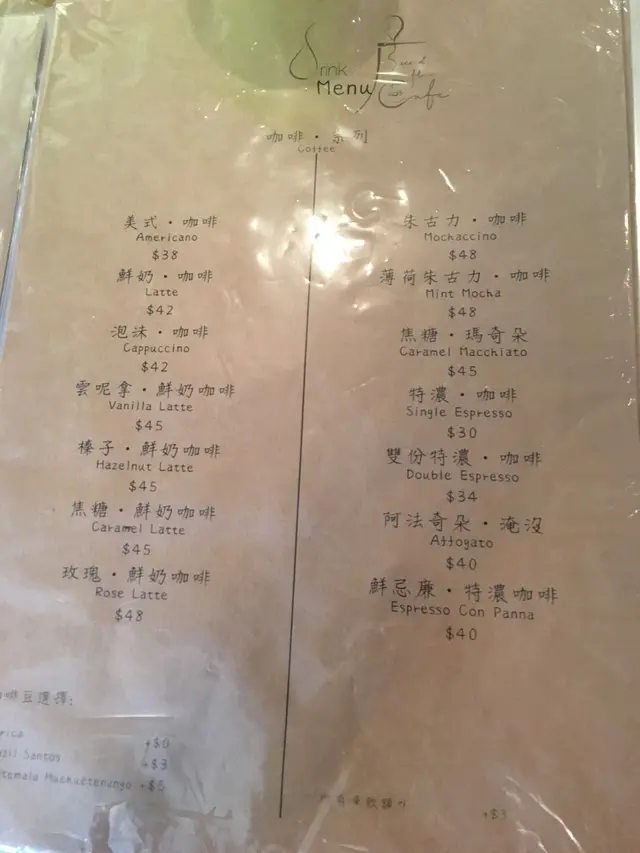 Drink
Menu
Cafe
咖啡・系列
Coffee
美式・咖啡
Americano
$38
鮮奶・咖啡
Latte
$42
泡沫・咖啡
Cappuccino
$42
雲呢拿・鮮奶咖啡
Vanilla Latte
$45
榛子・鮮奶咖啡
Hazelnut Latte
$45
焦糖・鮮奶咖啡
Caramel Latte
$45
玫瑰・鮮奶咖啡
Rose Latte
$48
啡豆選擇:
+$0
Santos +$3
Huehuetenango +$5
朱古力・咖啡
Mochaccino
$48
薄荷朱古力・咖啡
Mint Mocha
$48
焦糖・瑪奇朵
Caramel Macchiato
$45
特濃・咖啡
Single Espresso
$30
雙份特濃・咖啡
Double Espresso
$34
阿法奇朵・淹沒
Affogato
$40
鮮忌廉・特濃咖啡
Espresso Con Panna
$40
+$3